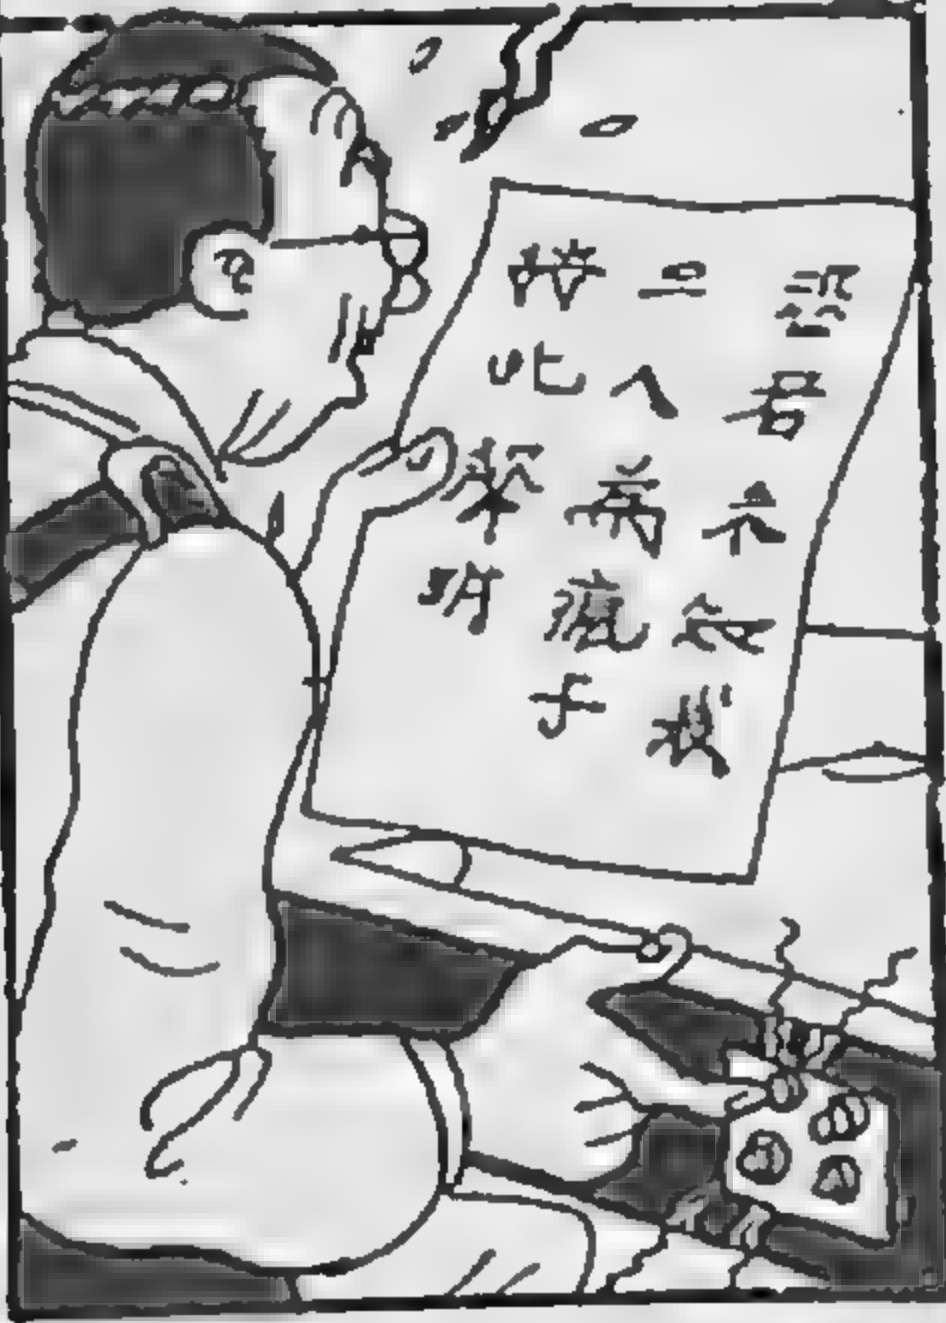 恐君不知我
二人為瘋子
特此聲明